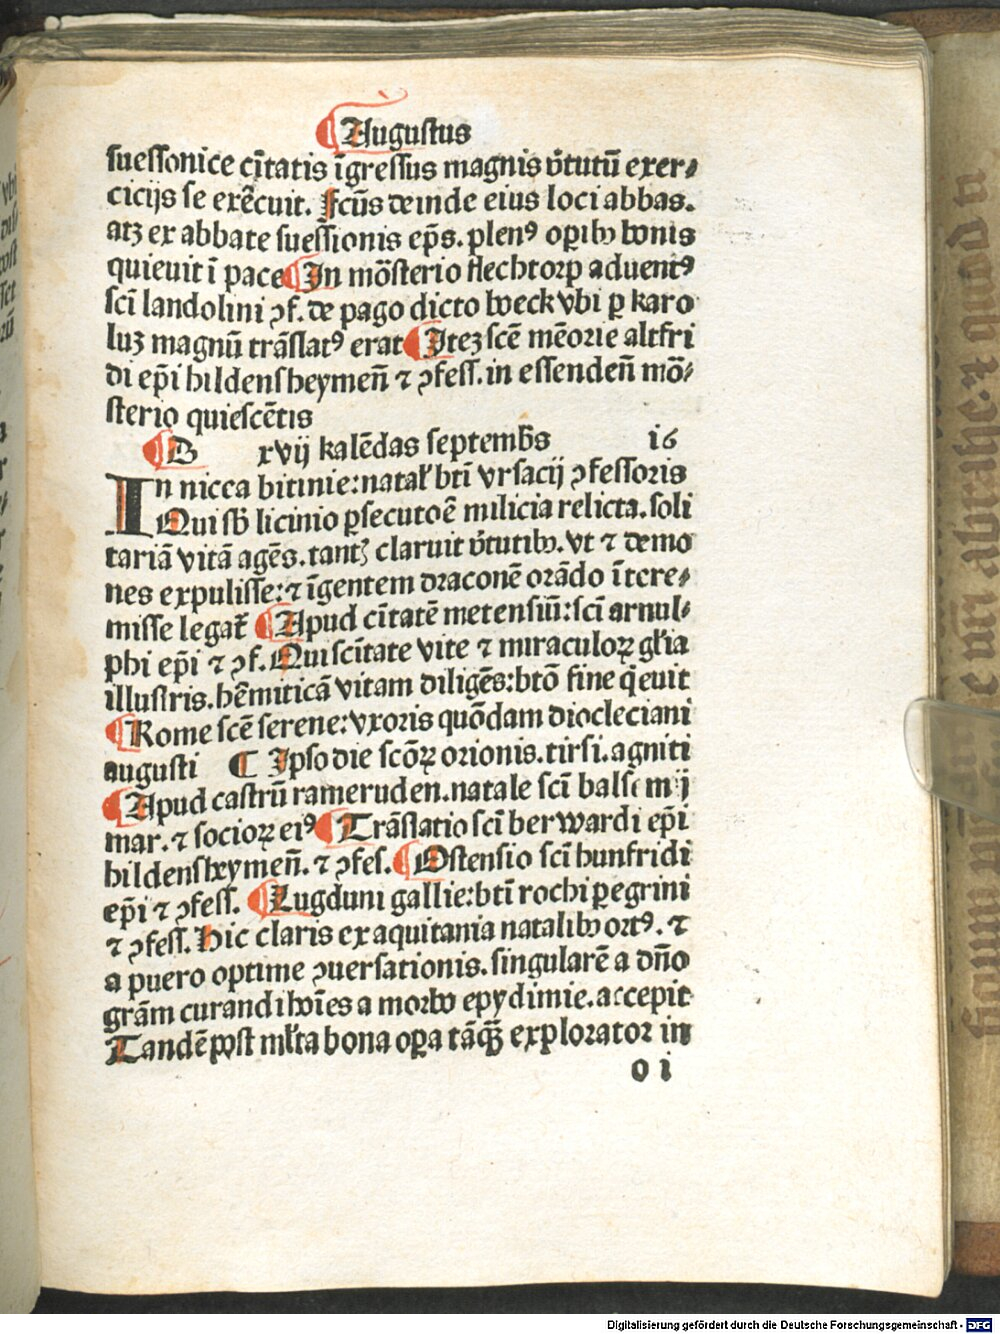 ¶ Augustus
suessonice cītatis īgressus magnis v̄tutū exer⸗
cicijs se exērcuit. Fcūs deinde eius loci abbas.
atꝫ ex abbate suessionis ep̄s. plenꝰ oꝑibꝫ bonis
quieuit ī pace ¶ In mōsterio flechtorp aduentꝰ
sc̄i landolini ꝯf. de pago dicto boeck vbi ꝑ karo
luꝫ magnū trāslatꝰ erat ¶ Iteꝫ sc̄e mēorie altfri
di ep̄i hildensheymen̄ ⁊ ꝯfess. in essenden̄ mō⸗
sterio quiescētis
¶ B xvij kalēdas septemb̄s 16
In nicea bitinie: natal' bt̄i vrsacij ꝯfessoris
Qui sb̄ licinio ꝑsecutoē milicia relicta. soli
tariā vitā agēs. tantꝫ claruit v̄tutibꝫ. vt ⁊ demo
nes expulisse: ⁊ īgentem draconē orādo ītere⸗
misse legat᷑ ¶ Apud cītatē metensiū: sc̄i arnul⸗
phi ep̄i ⁊ ꝯf. Qui scītate vite ⁊ miraculoꝝ gl'ia
illustris. hēmiticā vitam diligēs: btō fine q̇euit
¶ Rome sc̄e serene: vxoris quōdam diocleciani
augusti ¶ Ipso die scōꝝ orionis. tirsi. agniti
¶ Apud castrū rameruden. natale sc̄i balsemij
mar. ⁊ socioꝝ eiꝰ ¶ Trāslatio sc̄i berwardi ep̄i
hildensheymen̄. ⁊ ꝯfes. ¶ Ostensio sc̄i hunfridi
ep̄i ⁊ ꝯfess. ¶ Lugduni gallie: bt̄i rochi ꝑegrini
⁊ ꝯfess. Hic claris ex aquitania natalibꝫ ortꝰ. ⁊
a puero optime ꝯuersationis. singularē a dn̄o
grām curandi hoīes a morbo epydimie. accepit
Tandē post ml'ta bona oꝑa tāq̄ꝫ explorator in
o i
Digitalisierung gefördert durch die Deutsche Forschungsgemeinschaft - DFG